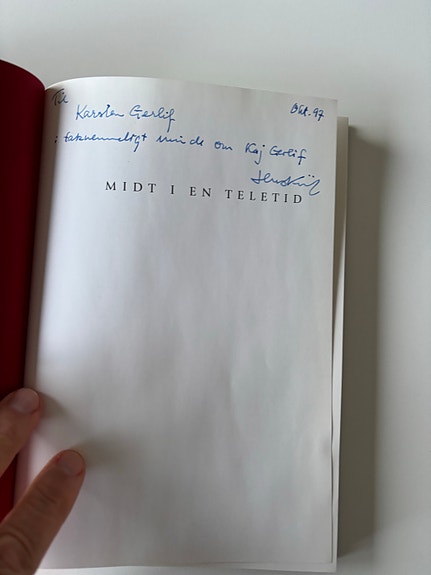 Til
Okt. 97
Karsten Gerlif
i taknemmeligt minde om Kaj Gerlif
MIDT I EN TELETID